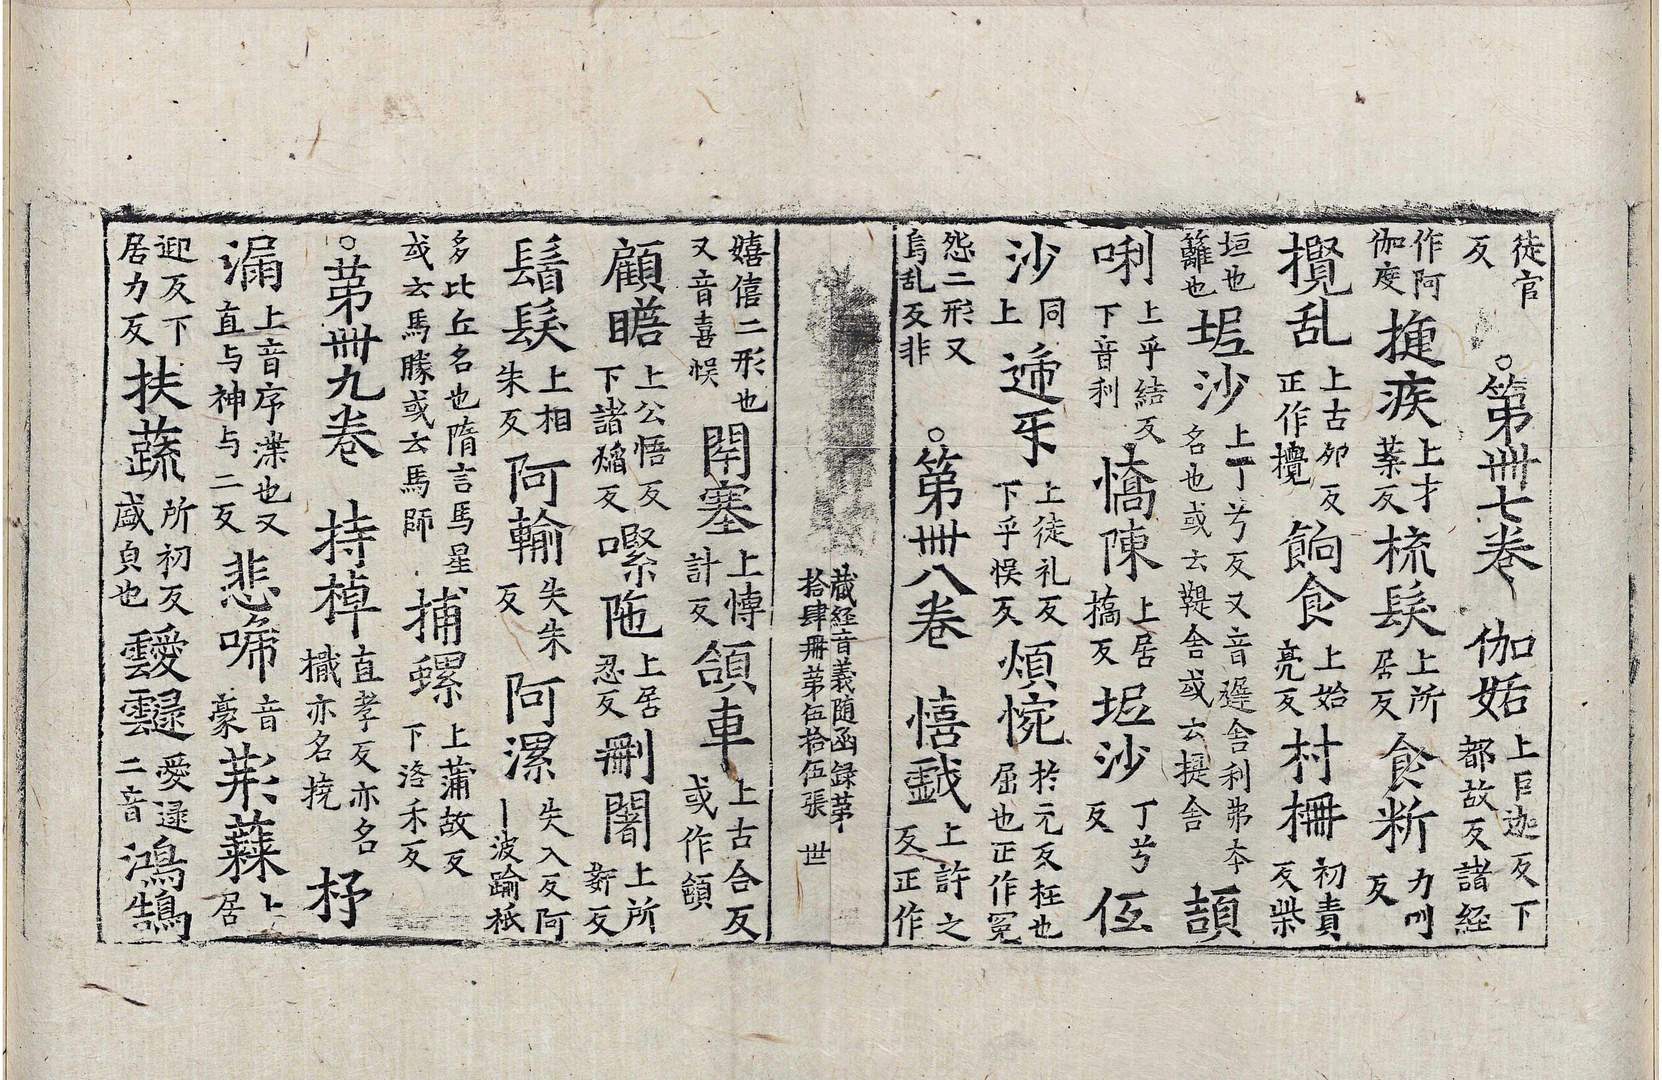 徒官反　○第卌七卷　伽妬上巨迦反下都故反諸経
作阿伽度　捷疾上才葉反　梳髮上所居反　食断力叫反
攪乱上古夘反正作攪　餉食上始亮反　村柵初責反柴
垣也籬也　坘沙上丁兮反又音遲舎利弗夲名也或云鞮舎或云提舎　頡
唎上乎結反下音利　憍陳上居撟反　坘沙丁兮反　伍
沙同上　遞㸦上徒礼反下乎悮反　煩惋於元反枉也屈也正作冤
怨二形又烏乱反非　○第卌八卷　憘戱上許之反正作
藏経音義随函録第拾肆冊第伍拾伍張　世
嬉僖二形也又音喜悮　閇塞上愽計反　頜車上古合反或作頷
顧瞻上公悟反下諸㷔反　㗫陁上居忍反　刪闍上所薪反
鬚髮上相朱反　阿輸失朱反　阿漯失入反阿丨波踰祇
多比丘名也隋言馬星或云馬勝或云馬師　捕螺上蒲故反下洛禾反
○第卌九卷　持棹直孝反亦名檝亦名撓　杼
漏上音序渫也又直与神与二反　悲啼音豪　荆蕀上居
迎反下居力反　扶蔬所初反盛皃也　靉靆愛逮二音　鴻鵠